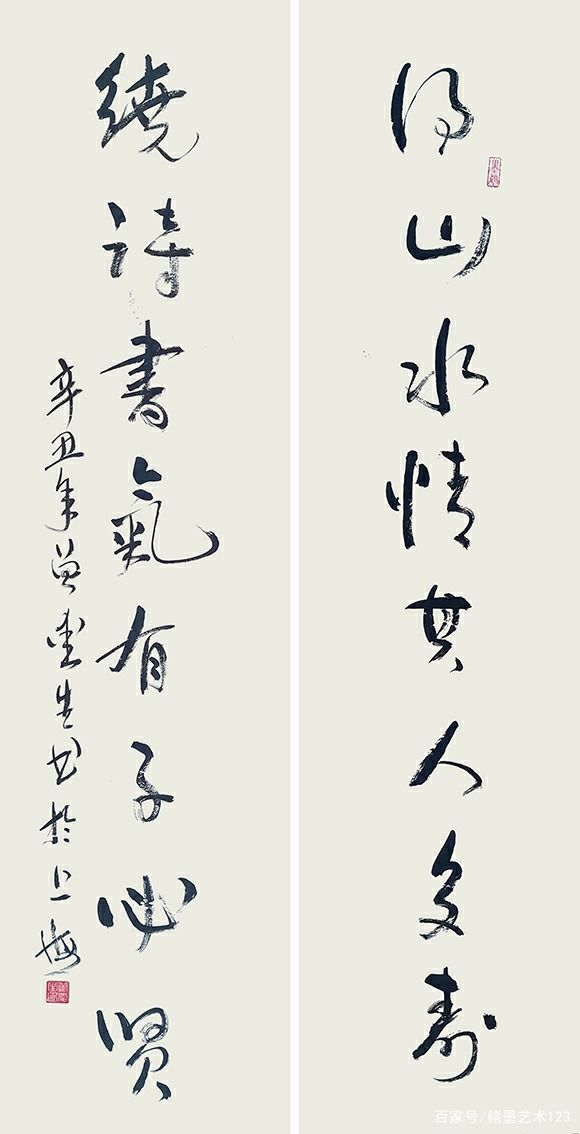 得山水情其人多寿
繞詩書氣有子必贤
辛丑年生书於上海
百家号/楮墨艺术123